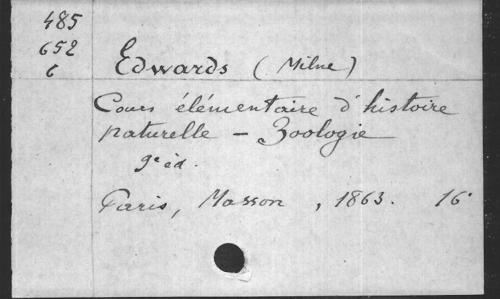 485
652
6
Edwards (Milne)
Cours élémentaire d'histoire
naturelle - Zoologie
9e éd.
Paris, Masson, 1863. 16°